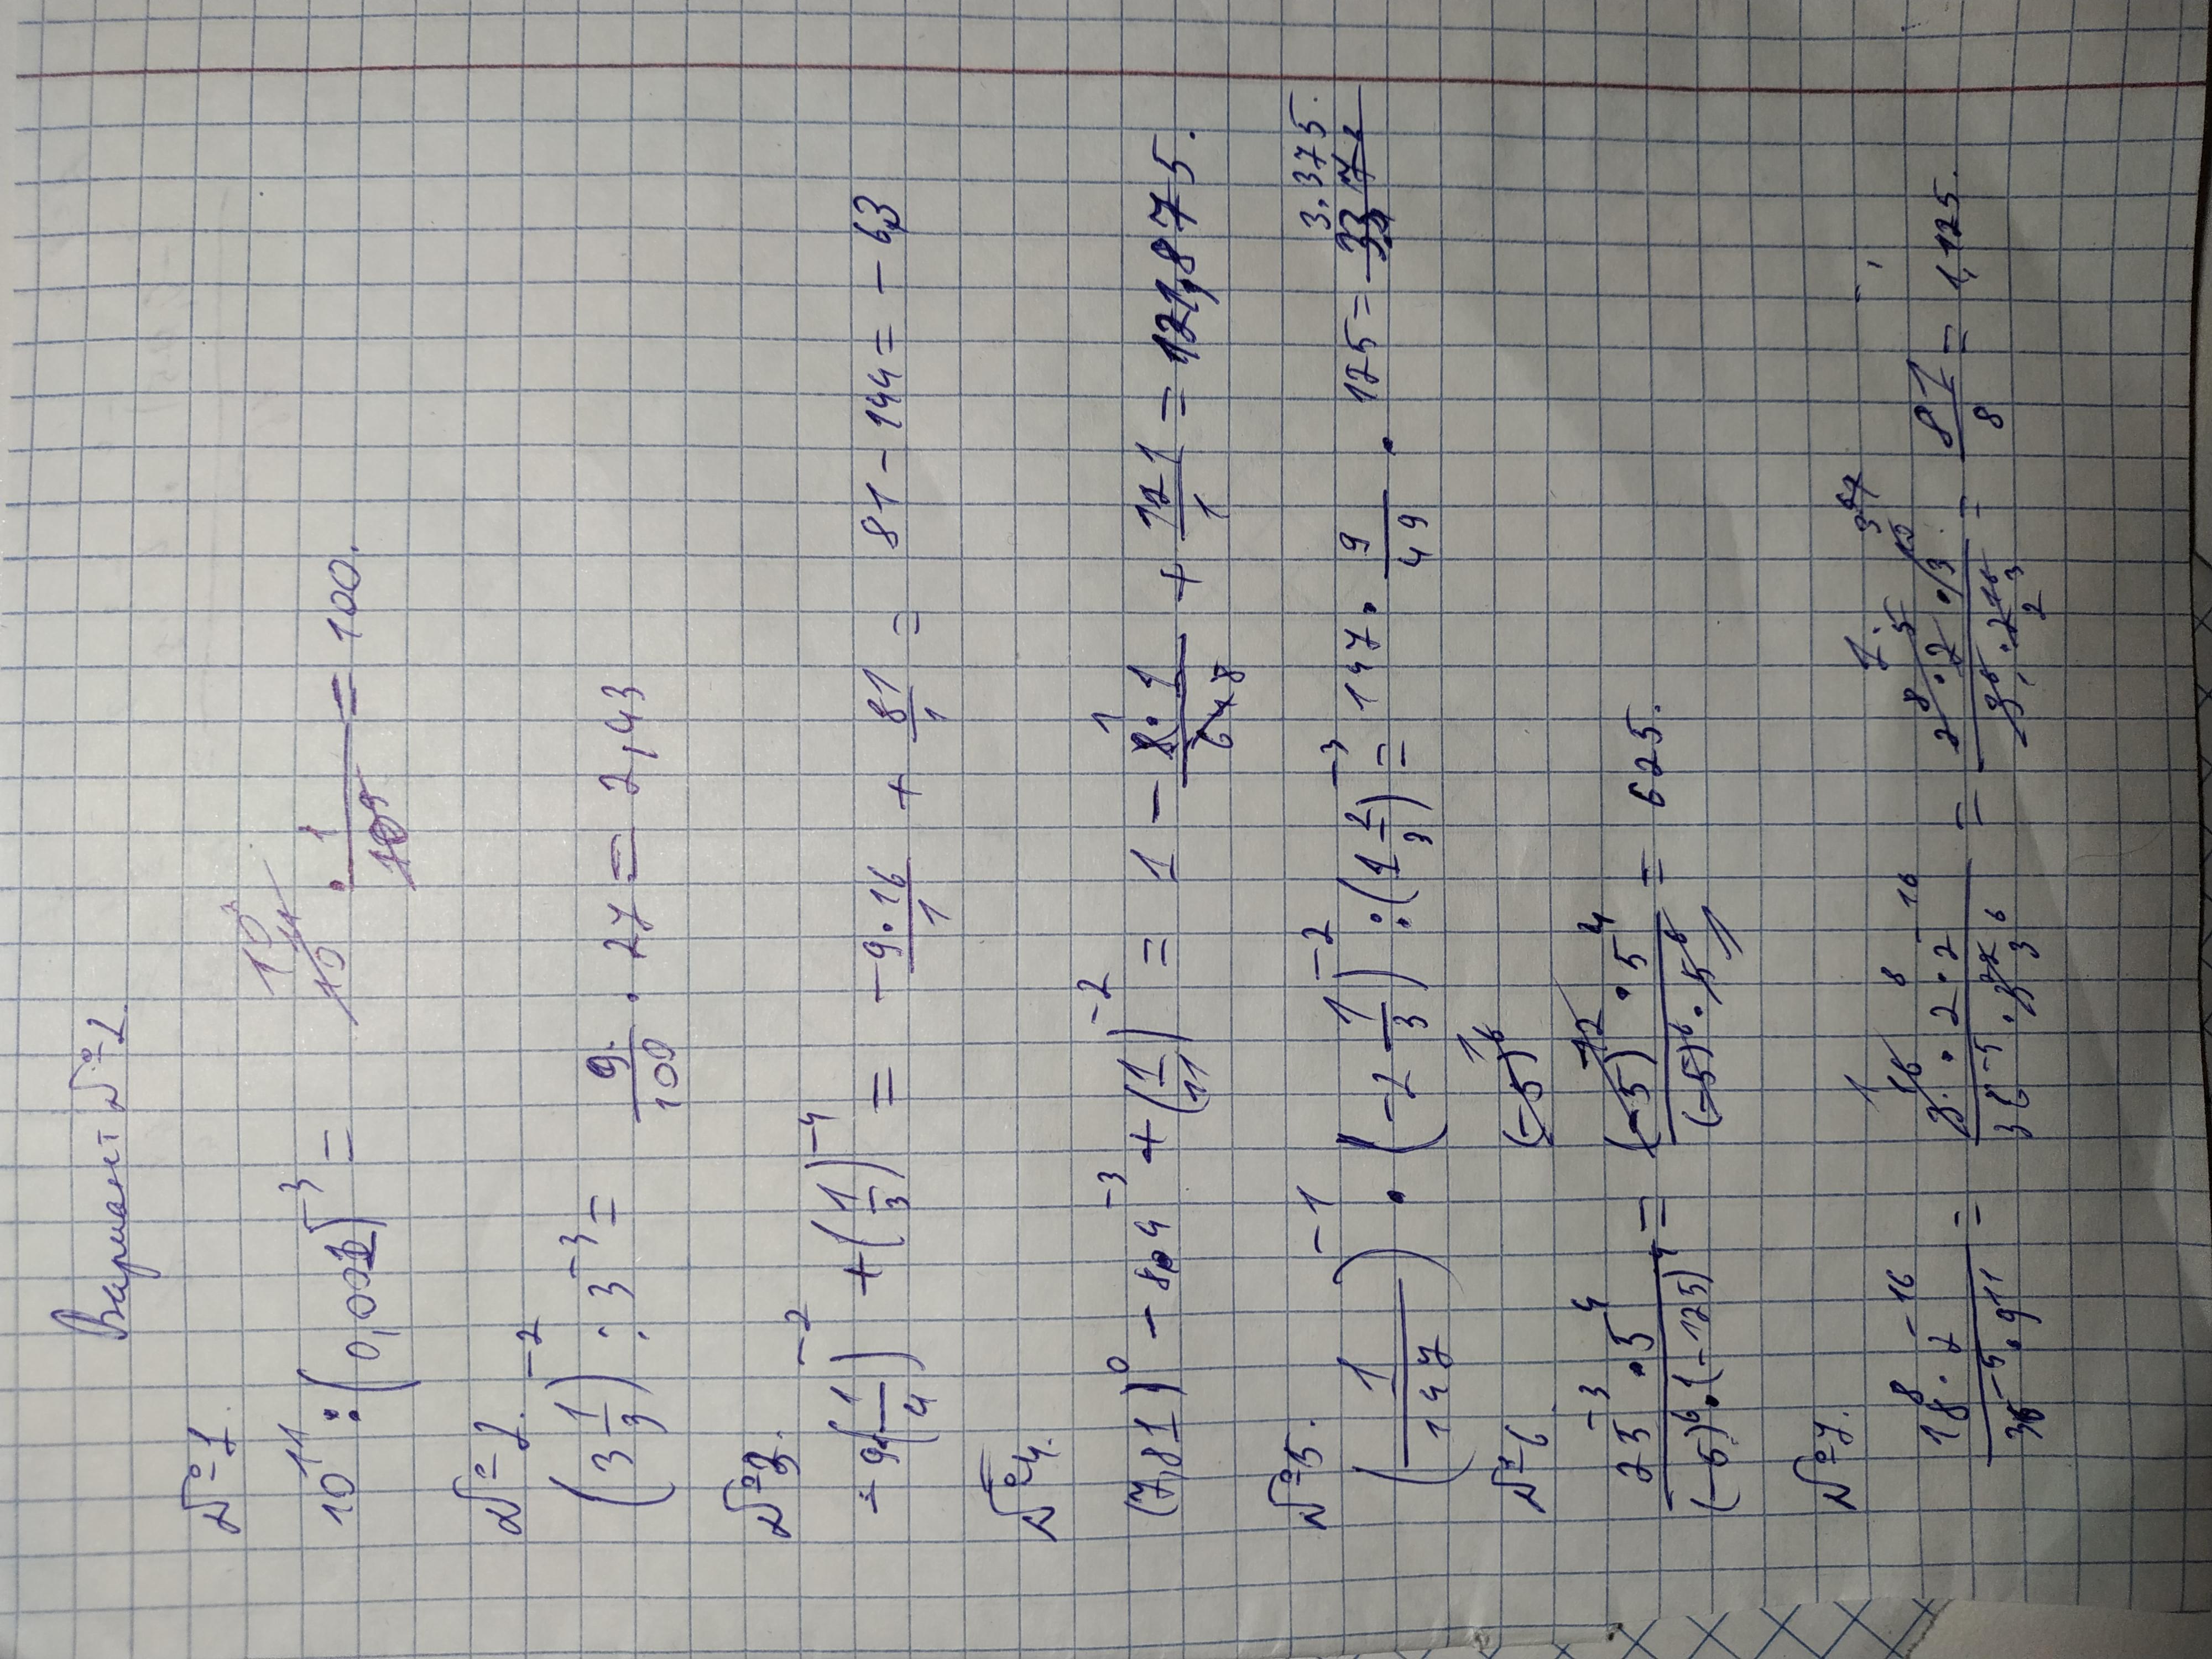 Вариант №2
№1
10^11 : (0,001)^-3 = 10^11 · 1/10^9 = 100.
№2.
(3 1/3)^-2 : 3^-3 = 9/100 · 27 = 2,43
№3.
-9(1/4)^-2 + (1/3)^-4 = -9·16/1 + 81/1 = 81-144 = -63
№4.
(7,81)^0 - 8·4^-3 + (1/11)^-2 = 1 - 8·1/64 8 + 121/1 = 121,875.
№5.
(1/147)^-1 · (-2 1/3)^-2 : (1 2/3)^-3 = 147 · 9/49 · 125 = 3.375.
№6.
25^-3 · 5^4 / (-5)^6 · (-125)^4 = (-5)^12 · 5^4 / (-5)^6 · 5^6 = 625.
№7.
18^8 · 2^-16 / 36^-5 · 9^11 = 3^16 · 2^8 · 2^-16 / 36^-5 · 3^22 = 2^8 · 2^5 · 3^10 / 3^6 · 2^16 = 81/8 = 1,125.